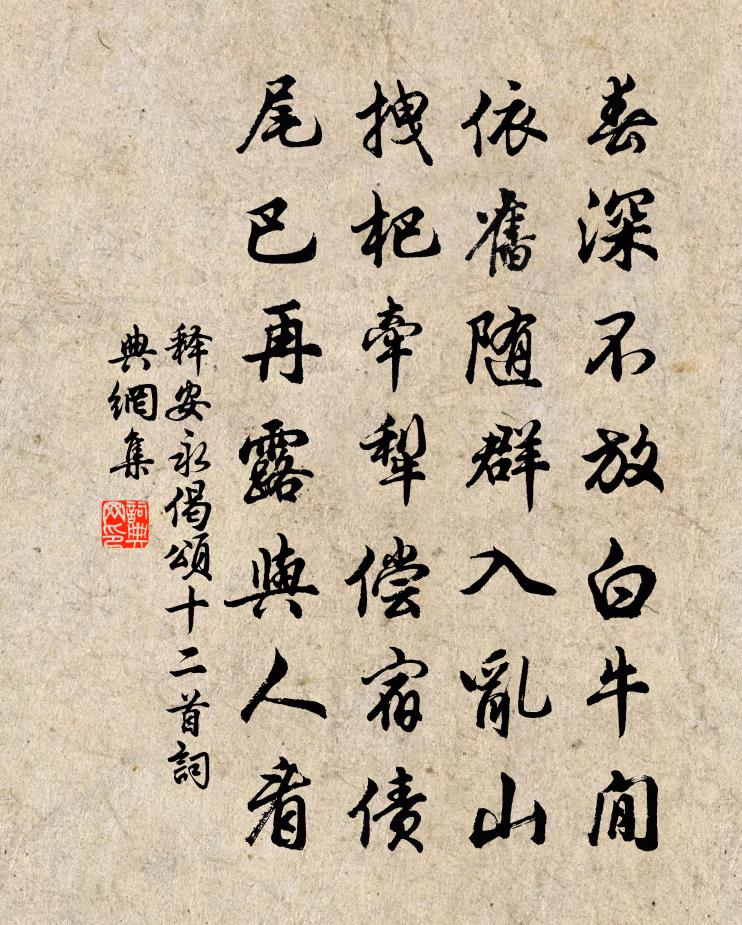 春深不放白牛閒
依舊随群入亂山
拽杷牽犁偿宿债
尾巴再露與人看
释安永偈頌十二首詞
典網集
詞典
网印